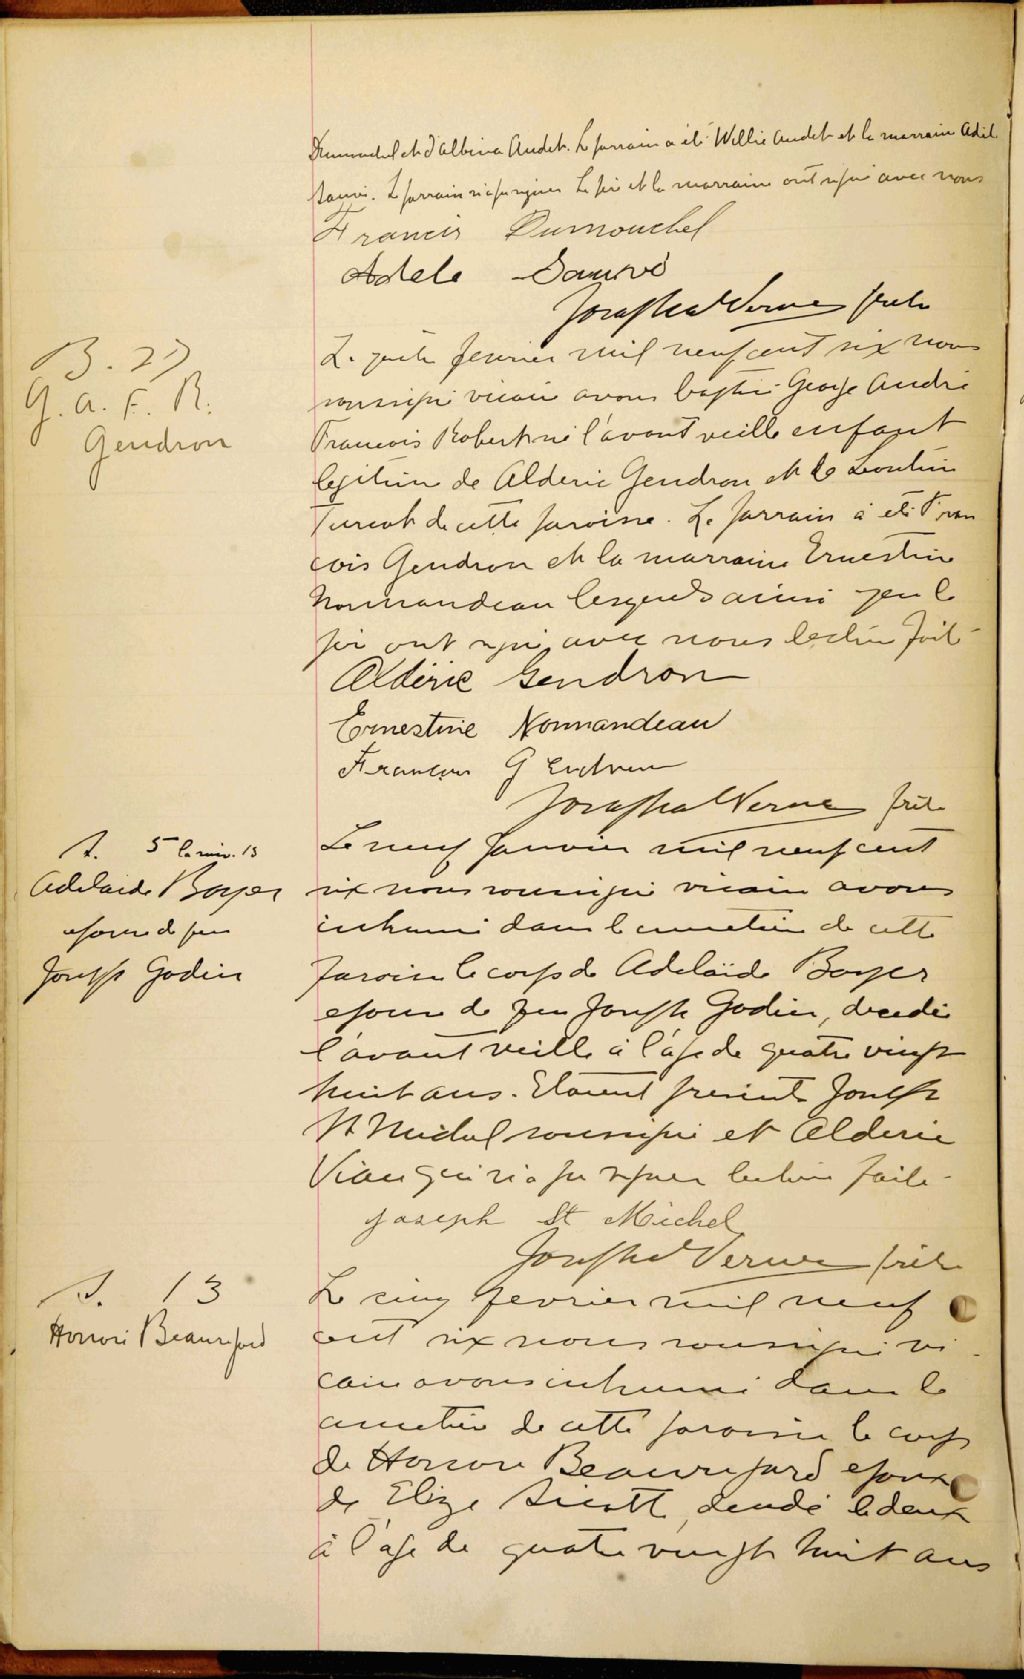 Dumouchel et d'Albina Audet. Le parrain a été Willie Audet et la marraine Adèle
Sauvé. Le parrain n'a pu signer Le père et la marraine ont signé avec nous
Francis Dumouchel
Adele Sauvé
Joseph Verner prêtre
B. 27
G. A. F. R.
Gendron
Le quatre fevrier mil neuf cent six nous
soussigné vicaire avons baptisé George André
Francois Robert né l'avant veille enfant
legitime de Alderic Gendron et de Leontine
Turcot de cette paroisse. Le parrain à été Fran
cois Gendron et la marraine Ernestine
Normandeau lesquels ainsi que le
père ont signé avec nous lecture faite
Aldéric Gendron
Ernestine Normandeau
Francois Gendron
prêtre
S. 5
Adelaide Boyer
epouse de feu
Joseph Godin
Le neuf Janvier mil neuf cent
six nous soussigné vicaire avons
inhumé dans le cimetière de cette
paroisse le corps de Adelaïde Boyer
epouse de feu Joseph Godin, decedée
l'avant veille à l'age de quatre vingt
huit ans. Etaient presents Joseph
St Michel soussigné et Alderic
Viau qui n'a pu signer lecture faite.
Joseph St Michel
prêtre
S. 13
Honoré Beauregard
Le cinq fevrier mil neuf
cent six nous soussigné vi
caire avons inhumé dans le
cimetière de cette paroisse le corps
de Honoré Beauregard epoux
de Elize Sicotte, decedé le deux
à l'age de quatre vingt huit ans